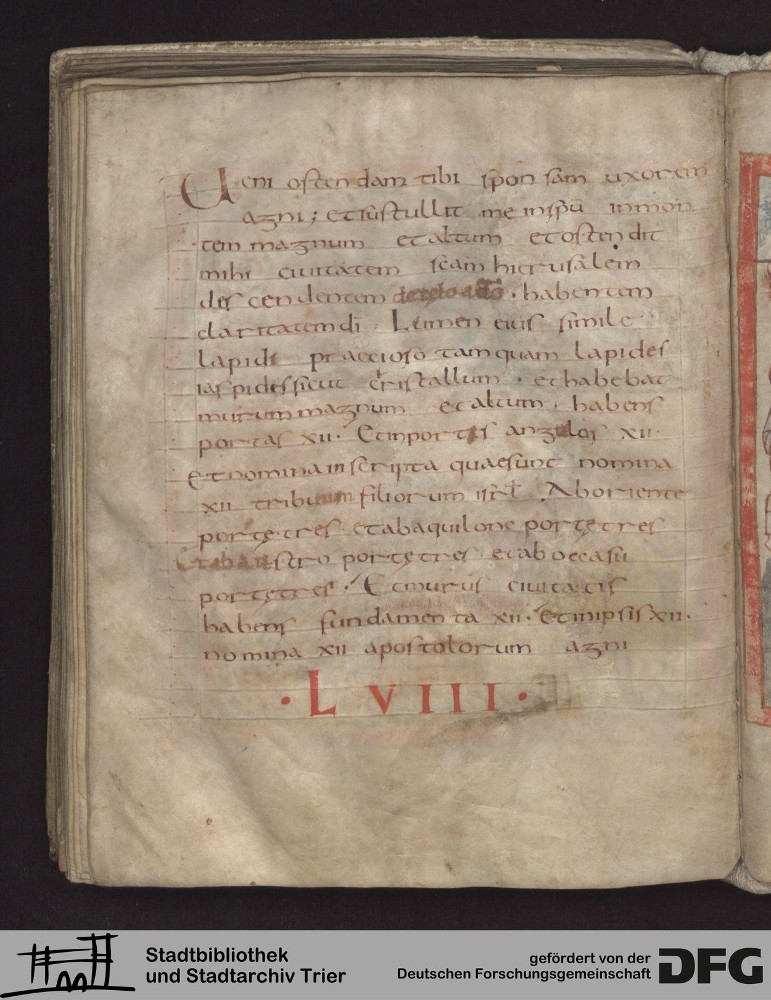 Ueni ostendam tibi sponsam uxorem
agni; et sustullit me in sp̄u in mon
tem magnum et altum et ostendit
mihi ciuitatem sc̄am hierusalem
discendentem de celo · habentem
claritatem dī · Lumen eius simile
lapidi praecioso tamquam lapides
iaspides sicut cristallum · et habebat
murum magnum et altum · habens
portas xii · Et in portis angulos xii ·
Et nomina inscripta quae sunt nomina
xii tribuum filiorum isrł · Ab oriente
portę tres · et ab aquilone portę tres
Et ab austro portę tres et ab occasu
portę tres · Et murus ciuitatis
habens fundamenta xii · Et in ipsis xii ·
nomina xii apostolorum agni
· L V I I I ·
Stadtbibliothek
und Stadtarchiv Trier
gefördert von der
Deutschen Forschungsgemeinschaft
DFG